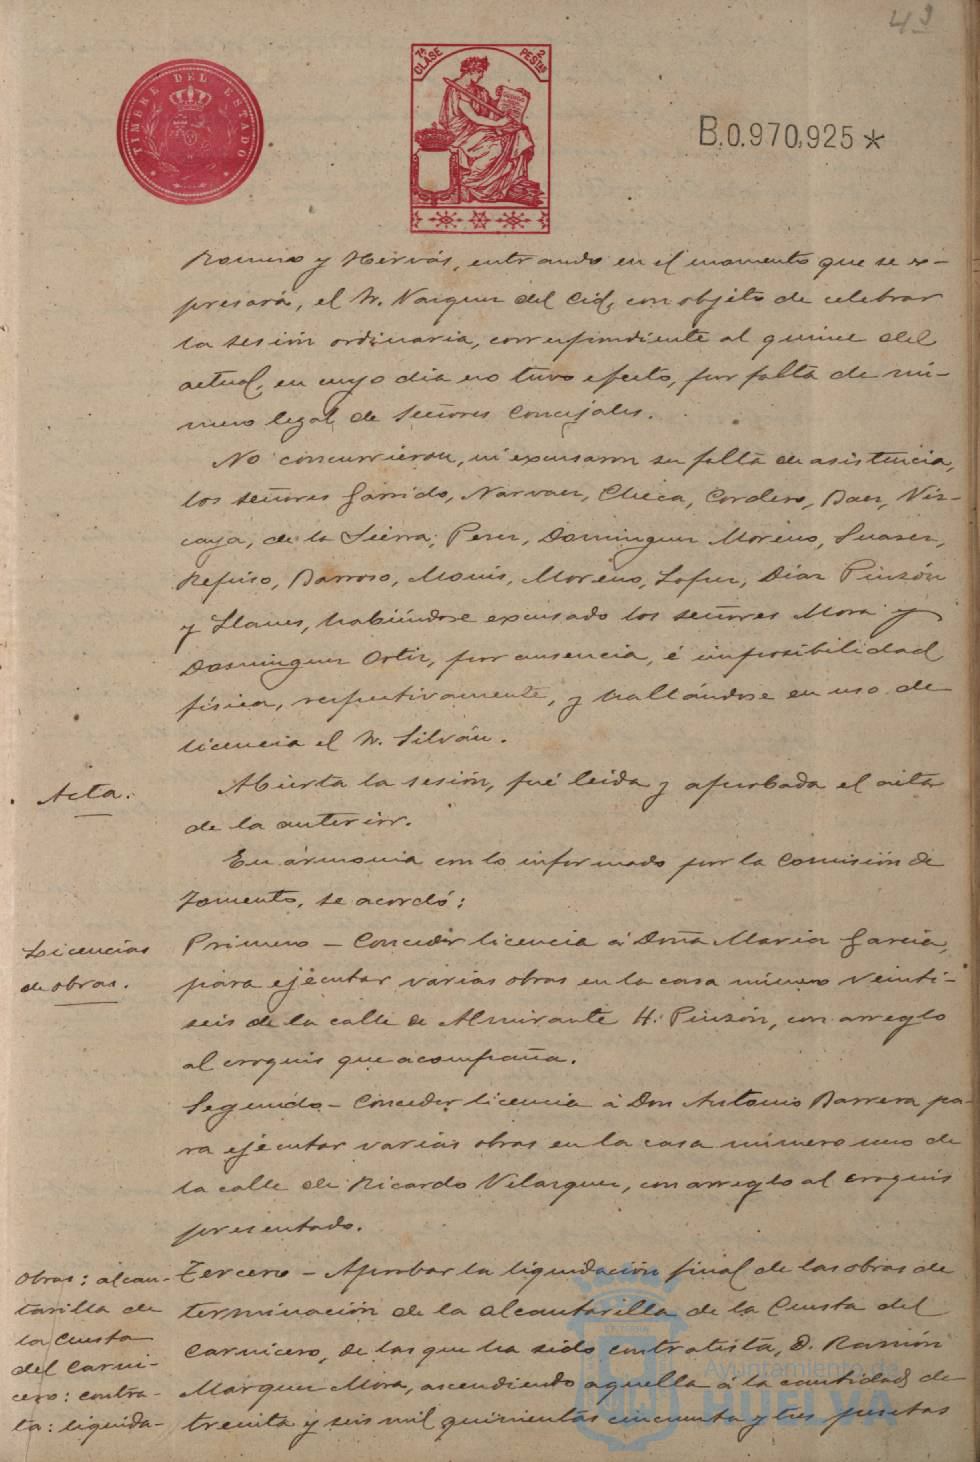 43
TIMBRE DEL ESTADO
7ª CLASE
2 PESTAS
B.0.970,925*
Romero y Hervás, entrando en el momento que se ex-
presará, el Sr. Vazquez del Cid, con objeto de celebrar
la sesión ordinaria, correspondiente al quince del
actual, en cuyo dia no tuvo efecto, por falta de nú-
mero legal de Señores Concejales.
No concurrieron, ni excusaron su falta de asistencia,
los señores Garrido, Narvaez, Checa, Cordero, Baez, Viz-
caya, de la Sierra, Perez, Dominguez Moreno, Suarez,
Repiso, Barroso, Monis, Moreno, Lopez, Diaz Pinzón
y Llanes, habiéndose excusado los señores Mora y
Dominguez Ortiz, por ausencia, é imposibilidad
física, respectivamente, y hallándose en uso de
licencia el Sr. Silván.
Acta.
Abierta la sesión, fué leida y aprobada el acta
de la anterior.
En ármonia con lo informado por la Comisión de
Fomento, se acordó:
Licencias
de obras.
Primero - Conceder licencia á Doña Maria Garcia,
para ejecutar varias obras en la casa número veinti-
seis de la calle de Almirante H. Pinzón, con arreglo
al croquis que acompaña.
Segundo - Conceder licencia á Don Antonio Barrera pa-
ra ejecutar varias obras en la casa número uno de
la calle de Ricardo Velazquez, con arreglo al croquis
presentado.
Obras: alcan-
tarilla de
la Cuesta
del Carni-
cero: contra-
ta: liquida-
Tercero - Aprobar la liquidación final de las obras de
terminación de la alcantarilla de la Cuesta del
Carnicero, de las que ha sido contratista, D. Ramón
Marquez Mora, ascendiendo aquella á la cantidad de
treinta y seis mil quinientas cincuenta y tres pesetas
Ayuntamiento de
HUELVA